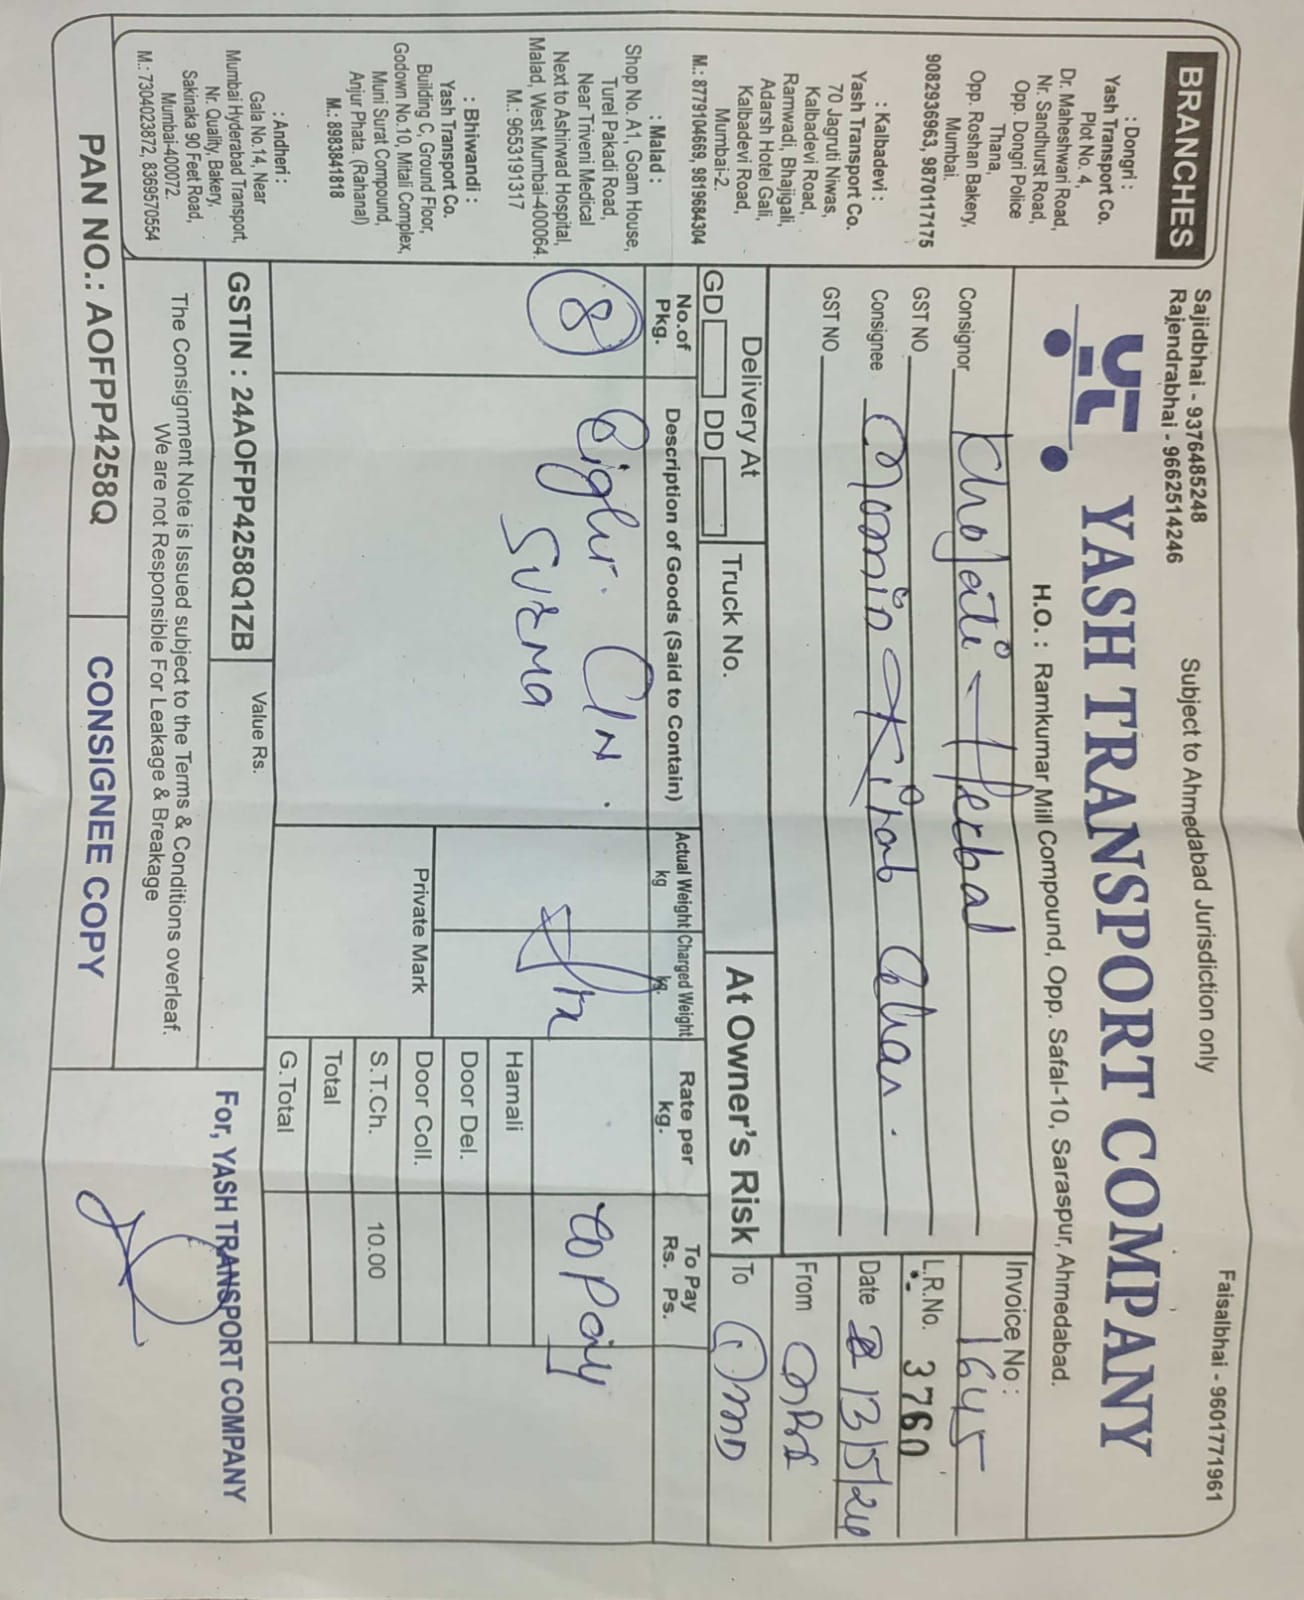 BRANCHES
: Dongri :
Yash Transport Co.
Plot No. 4,
Dr. Maheshwari Road,
Nr. Sandhurst Road,
Opp. Dongri Police
Thana,
Opp. Roshan Bakery,
Mumbai.
9082936963, 9870117175
: Kalbadevi :
Yash Transport Co.
70 Jagruti Niwas,
Kalbadevi Road,
Ramwadi, Bhajigali,
Adarsh Hotel Gali,
Kalbadevi Road,
Mumbai-2.
M.: 8779104669, 9819684304
: Malad :
Shop No. A1, Goam House,
Turel Pakadi Road,
Near Triveni Medical
Next to Ashirwad Hospital,
Malad, West Mumbai-400064.
M.: 9653191317
: Bhiwandi :
Yash Transport Co.
Building C, Ground Floor,
Godown No.10, Mitali Complex,
Muni Surat Compound,
Anjur Phata. (Rahanal)
M.: 8983841818
: Andheri :
Gala No.14, Near
Mumbai Hyderabad Transport,
Nr. Quality, Bakery,
Sakinaka 90 Feet Road,
Mumbai-400072.
M.: 7304023872, 8369570554
Sajidbhai - 9376485248
Rajendrabhai - 9662514246
Subject to Ahmedabad Jurisdiction only
Faisalbhai - 9601771961
YASH TRANSPORT COMPANY
H.O. : Ramkumar Mill Compound, Opp. Safal-10, Saraspur, Ahmedabad.
Consignor Khojati - Herbal
GST NO
Consignee Momin Kitab Ghar.
GST NO
Invoice No : 1645
L.R.No. 3760
Date 13/5/24
From
To
Delivery At
GD DD
Truck No.
At Owner's Risk
No.of Pkg.
Description of Goods (Said to Contain)
Actual Weight kg
Charged Weight kg.
Rate per kg.
To Pay Rs. Ps.
8
Surma
To pay
Hamali
Door Del.
Door Coll.
S.T.Ch. 10.00
Total
G.Total
Private Mark
GSTIN : 24AOFPP4258Q1ZB
Value Rs.
The Consignment Note is Issued subject to the Terms & Conditions overleaf.
We are not Responsible For Leakage & Breakage
For, YASH TRANSPORT COMPANY
PAN NO.: AOFPP4258Q
CONSIGNEE COPY